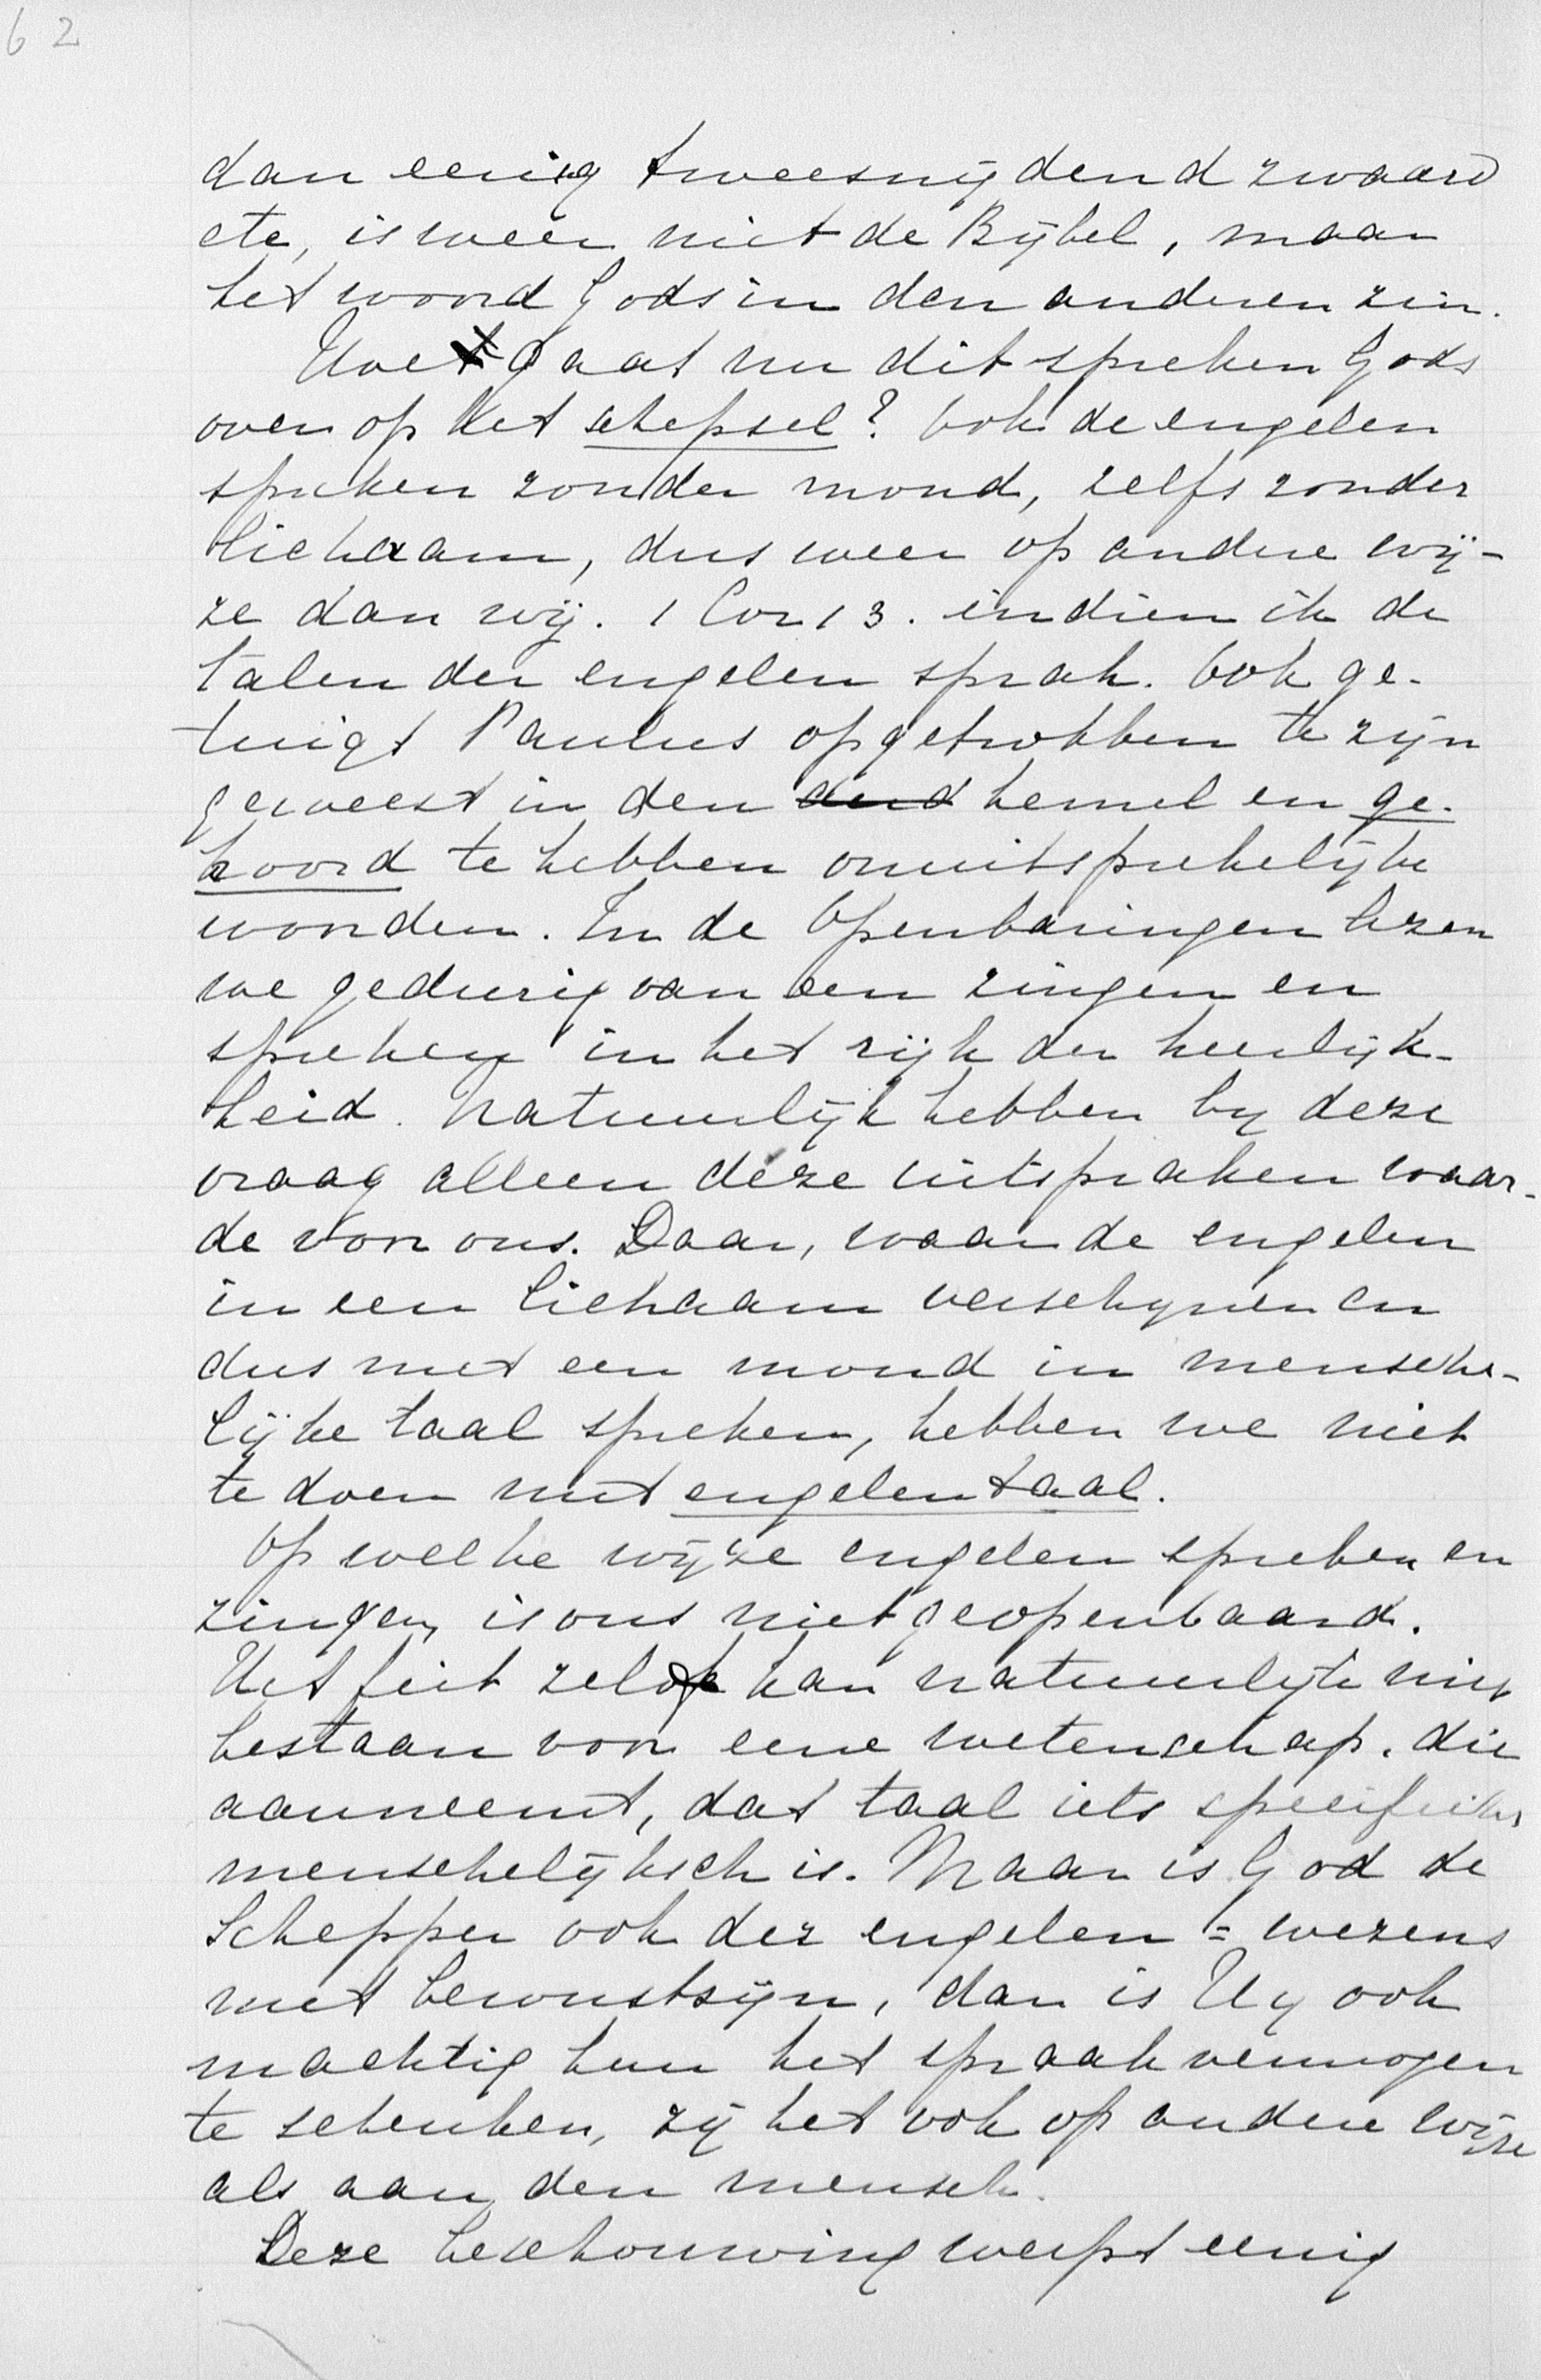 62
dan eenig tweesnijdend zwaard
etc, is weer niet de Bijbel, maar
het woord Gods in den anderen zin.
Hoe gaat nu dit spreken Gods
over op het schepsel? Ook de engelen
spreken zonder mond, zelfs zonder
lichaam, dus weer op andere wij-
ze dan wij. 1 Cor 13. indien ik de
talen der engelen sprak. Ook ge-
tuigt Paulus opgetrokken te zijn
geweest in den hemel en ge-
hoord te hebben onuitsprekelijke
woorden. In de Openbaringen lezen
we gedurig van een zingen en
spreken in het rijk der heerlijk-
heid. Natuurlijk hebben by deze
vraag alleen deze uitspraken waar-
de voor ons. Daar, waar de engelen
in een lichaam verschynen en
dus met een mond in mensche-
lijke taal spreken, hebben we niet
te doen met engelentaal.
Op welke wijze engelen spreken en
zingen, is ons niet geopenbaard.
Het feit zelf kan natuurlijk niet
bestaan voor eene wetenschap, die
aanneemt, dat taal iets specifiek
menschelijksch is. Maar is God de
Schepper ook der engelen = wezens
met bewustzijn, dan is Hy ook
machtig hun het spraakvermogen
te schenken, zij het ook op andere wijze
als aan den mensch.
Deze beschouwing werpt eenig